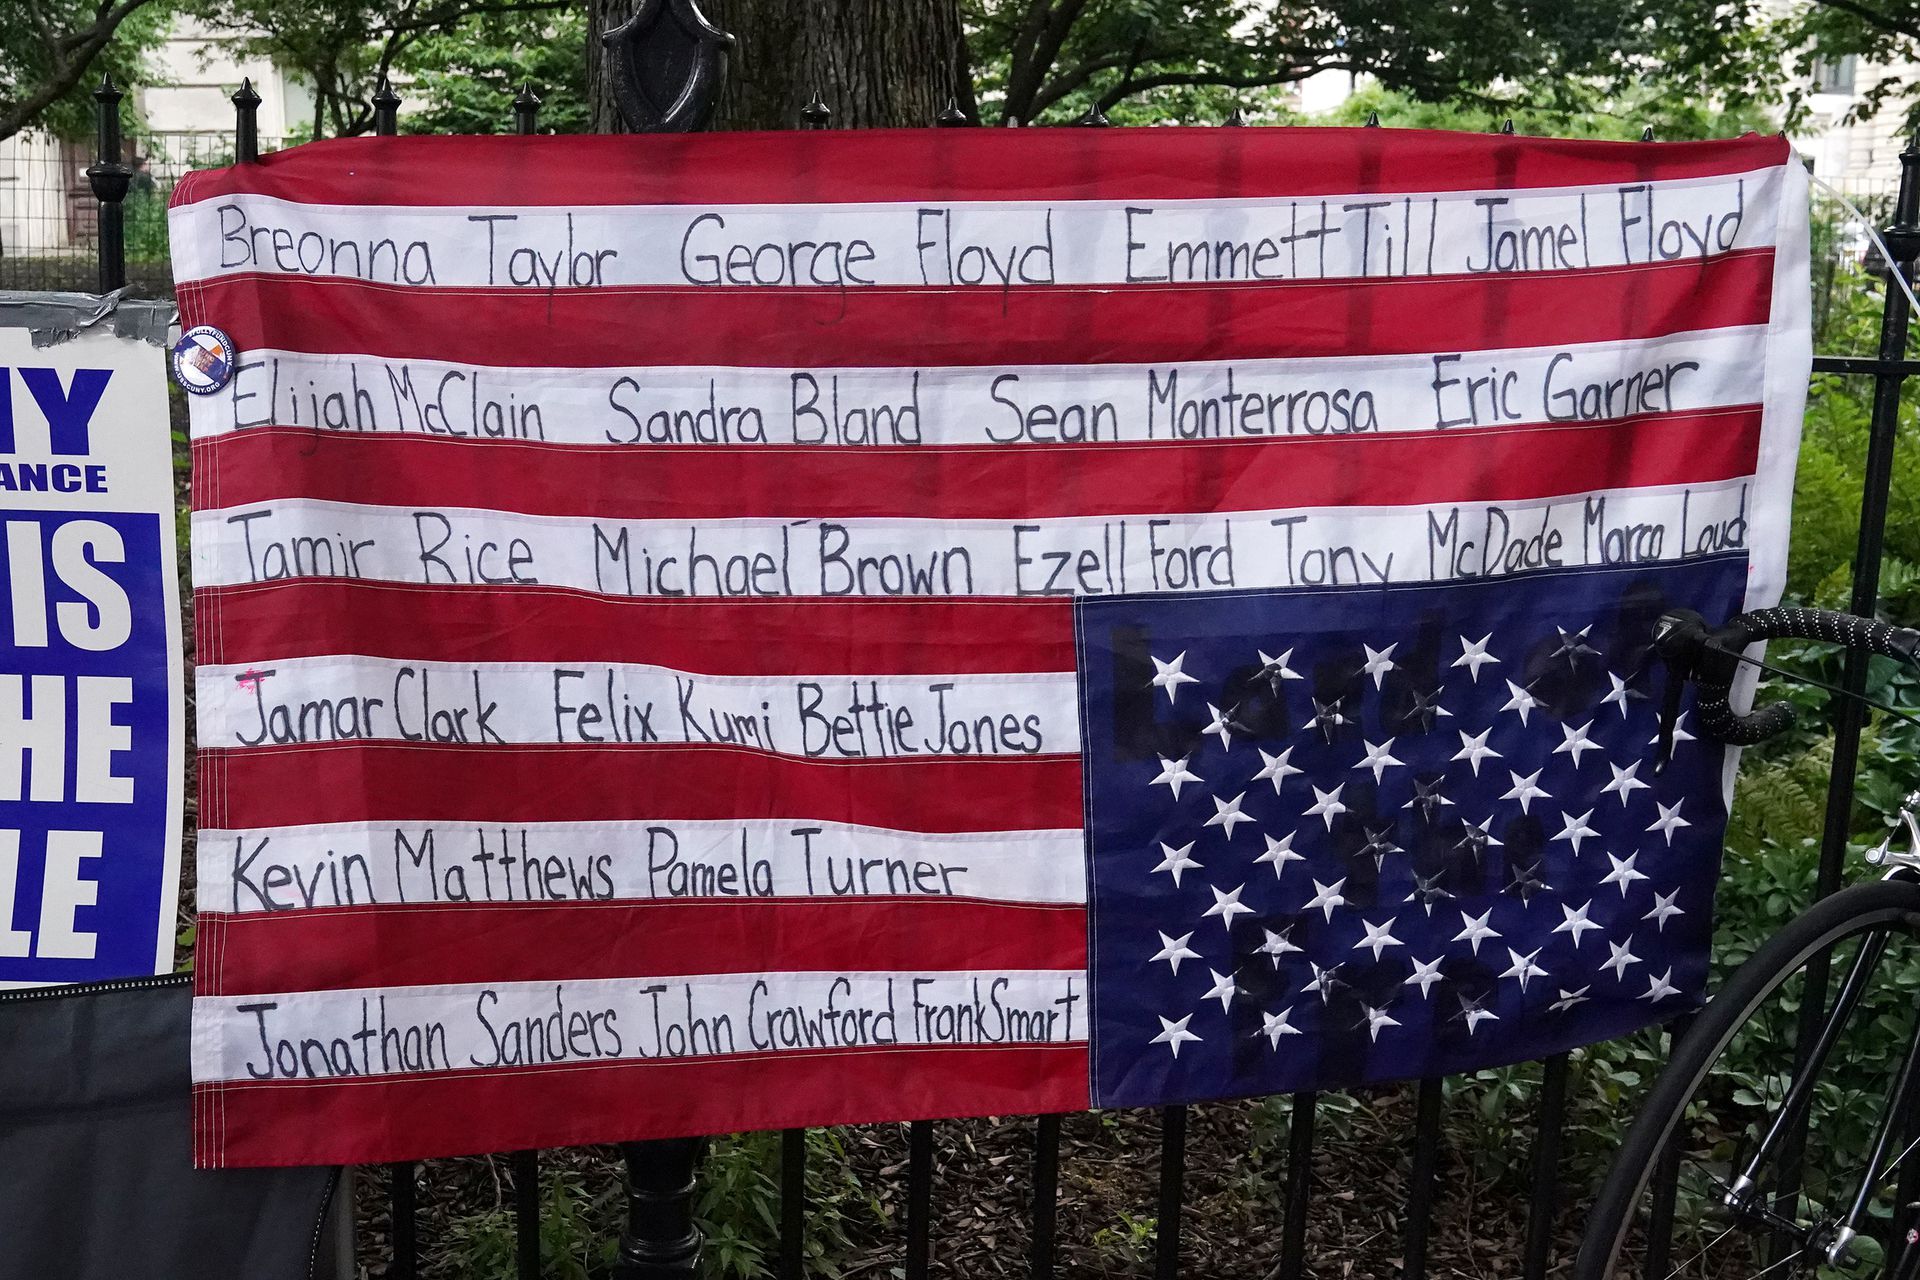 Breonna Taylor George Floyd Emmett Till Jamel Floyd
Elijah McClain Sandra Bland Sean Monterrosa Eric Garner
Tamir Rice Michael Brown Ezell Ford Tony McDade Marco Loud
Jamar Clark Felix Kumi Bettie Jones
Kevin Matthews Pamela Turner
Jonathan Sanders John Crawford Frank Smart
Land of
the
Free
#FULLYFUNDCUNY
NY
ANCE
IS
HE
LE